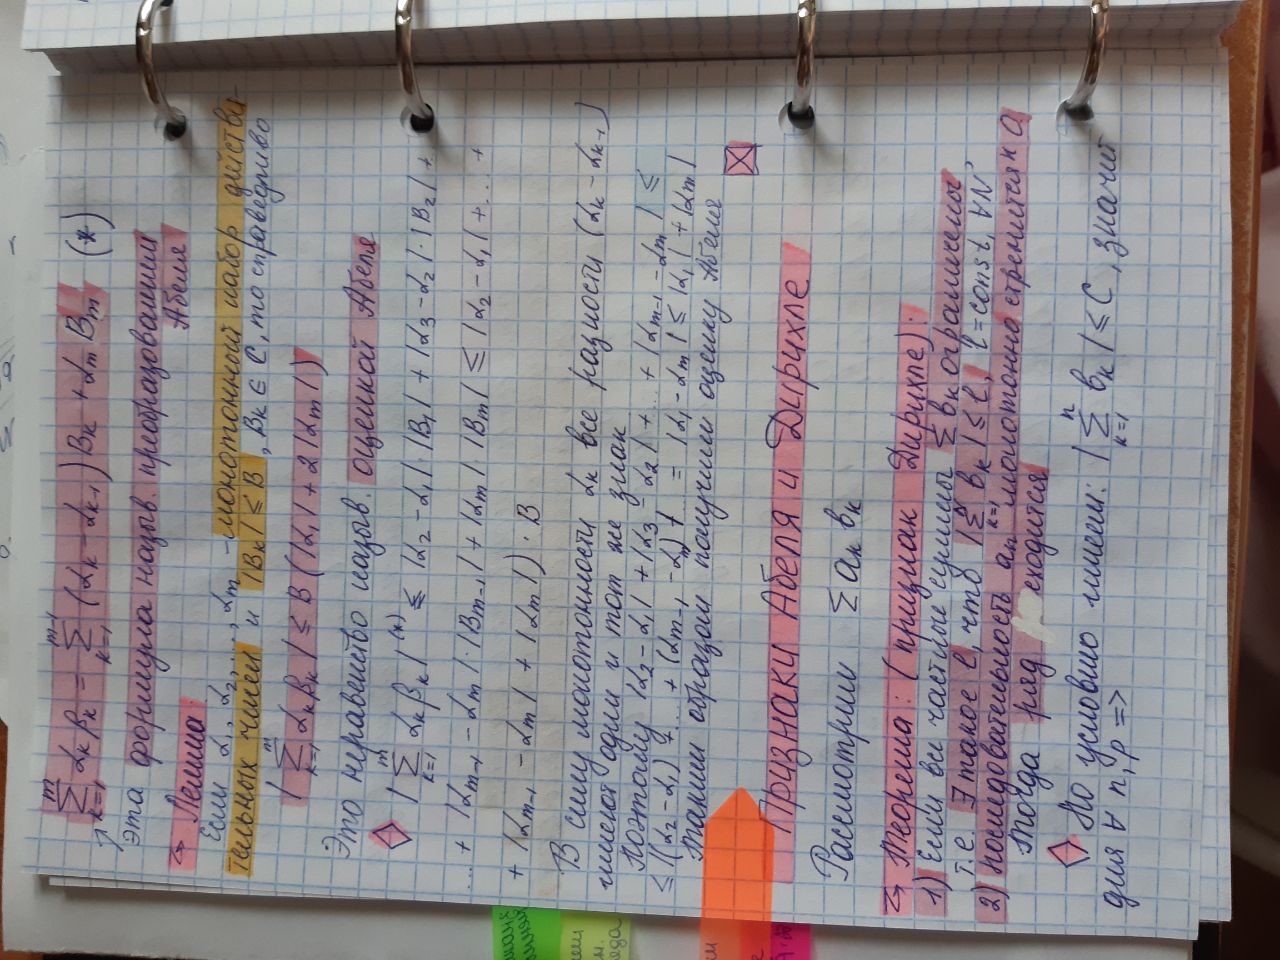 m∑k=1 αk βk = m-1∑k=1 (αk - αk-1) Bk + αm Bm (*)
Эта формула назыв. преобразованием
Абеля
→ Лемма:
Если α1, α2, ..., αm - монотонный набор действи-
тельных чисел и |Bk| ≤ B, Bk ∈ C, то справедливо
| m∑k=1 αk βk | ≤ B (|α1| + 2|αm|)
Это неравенство назыв. оценкой Абеля
◇ | m∑k=1 αk βk | (*) ≤ |α2 - α1|·|B1| + |α3 - α2|·|B2| + ..
... + |αm-1 - αm|·|Bm-1| + |αm|·|Bm| ≤ |α2 - α1| + ... +
+ |αm-1 - αm| + |αm|)·B
В силу монотонности αk все разности (αk - αk-1)
имеют один и тот же знак
Поэтому |α2 - α1| + |α3 - α2| + ... + |αm-1 - αm| ≤
≤ |(α2 - α1) + ... + (αm-1 - αm) + ... = |α1 - αm| ≤ |α1| + |αm|
Таким образом получили оценку Абеля
Признаки Абеля и Дирихле
Рассмотрим ∑ ak bk
→ Теорема: (признак Дирихле):
1) Если все частные суммы ∑ bk ограничены,
т.е. ∃ такое l, что | N∑k=1 bk | ≤ l, l = const, ∀N
2) последовательность an монотонно стремится к 0
Тогда ряд сходится
◇ По условию имеем: | n∑k=1 bk | ≤ C, значит
для ∀ n, p =>